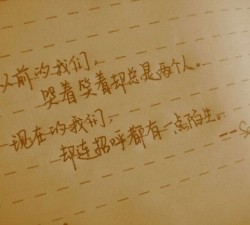 以前的我们、
哭着笑着却总是两个人。
现在的我们、
却连招呼都有一点陌生。